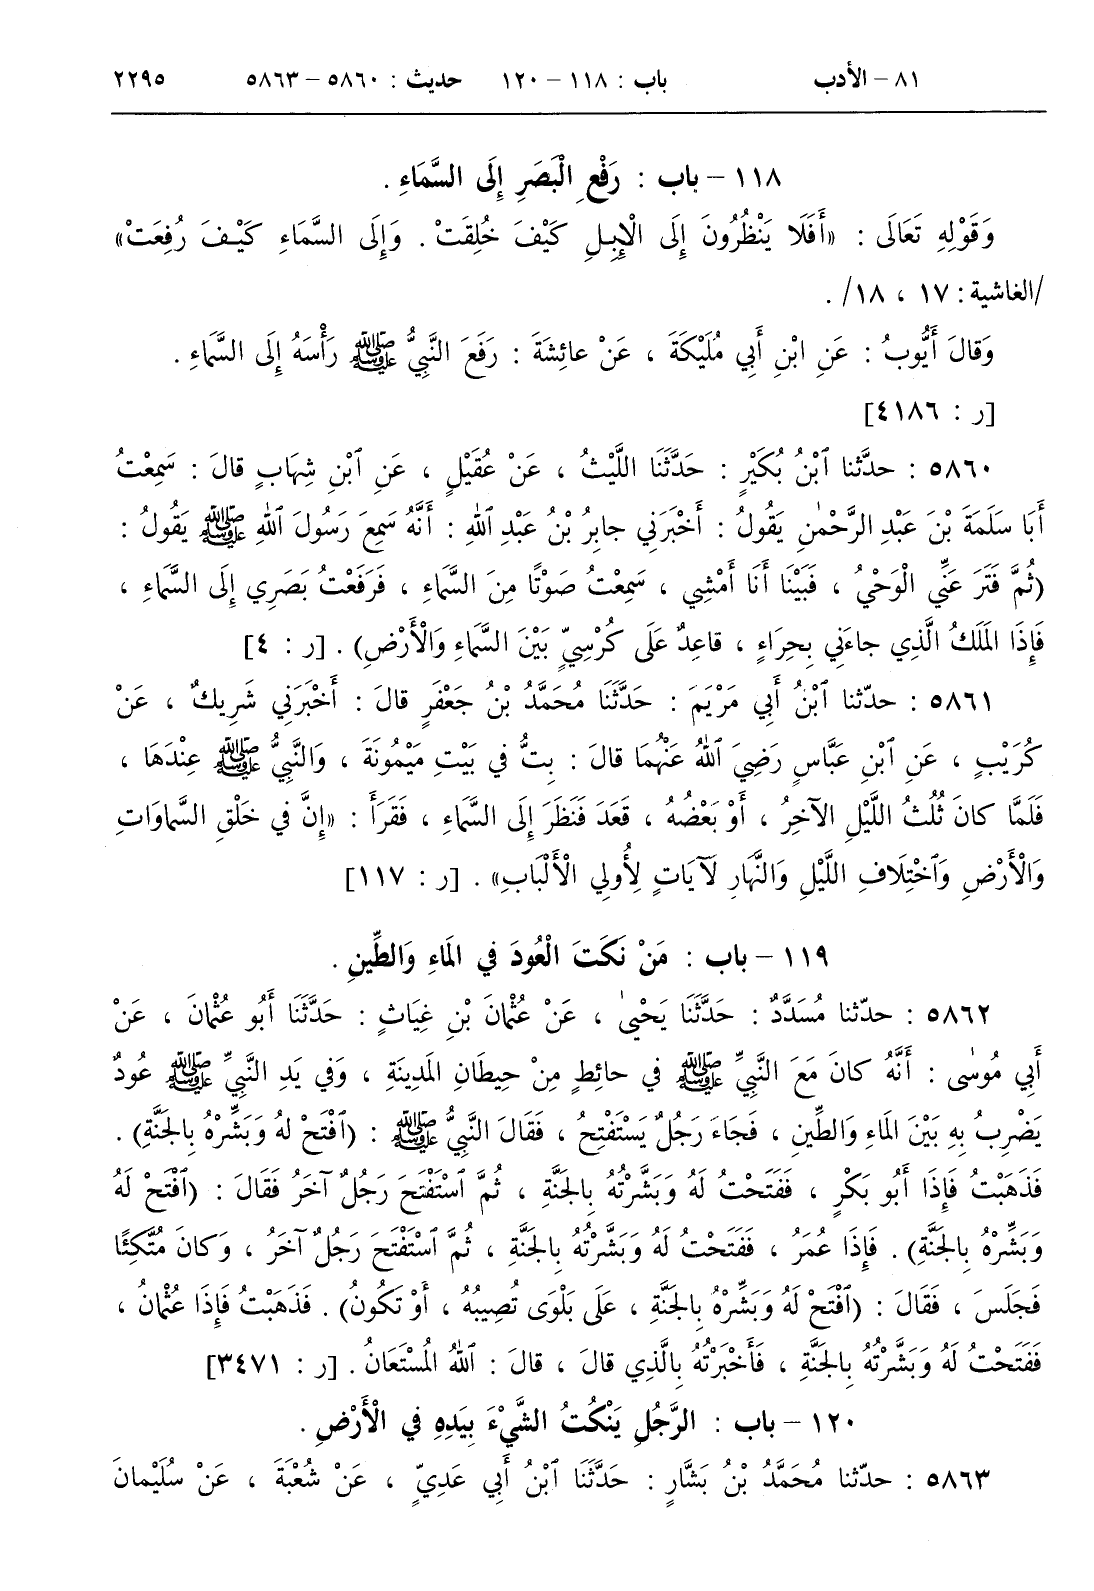 ٨١ – الأدب باب : ١١٨ – ١٢٠ حديث : ٥٨٦٠ – ٥٨٦٣ ٢٢٩٥
١١٨ – باب : رَفْعِ الْبَصَرِ إِلَى السَّمَاءِ .
وَقَوْلِهِ تَعَالَى : «أَفَلَا يَنْظُرُونَ إِلَى الْإِبِلِ كَيْفَ خُلِقَتْ . وَإِلَى السَّمَاءِ كَيْفَ رُفِعَتْ»
/الغاشية: ١٧ ، ١٨/ .
وَقالَ أَيُّوبُ : عَنِ ابْنِ أَبِي مُلَيْكَةَ ، عَنْ عائِشَةَ : رَفَعَ النَّبِيُّ ﷺ رَأْسَهُ إِلَى السَّمَاءِ .
[ر : ٤١٨٦]
٥٨٦٠ : حدّثنا ٱبْنُ بُكَيْرٍ : حَدَّثَنَا اللَّيْثُ ، عَنْ عُقَيْلٍ ، عَنِ ٱبْنِ شِهَابٍ قالَ : سَمِعْتُ
أَبَا سَلَمَةَ بْنَ عَبْدِ الرَّحْمٰنِ يَقُولُ : أَخْبَرَنِي جابِرُ بْنُ عَبْدِ ٱللهِ : أَنَّهُ سَمِعَ رَسُولَ ٱللهِ ﷺ يَقُولُ :
(ثُمَّ فَتَرَ عَنِّي الْوَحْيُ ، فَبَيْنَا أَنَا أَمْشِي ، سَمِعْتُ صَوْتًا مِنَ السَّمَاءِ ، فَرَفَعْتُ بَصَرِي إِلَى السَّمَاءِ ،
فَإِذَا المَلَكُ الَّذِي جاءَنِي بِحِرَاءٍ ، قاعِدٌ عَلَى كُرْسِيٍّ بَيْنَ السَّمَاءِ وَالْأَرْضِ) . [ر : ٤]
٥٨٦١ : حدّثنا ٱبْنُ أَبِي مَرْيَمَ : حَدَّثَنَا مُحَمَّدُ بْنُ جَعْفَرٍ قالَ : أَخْبَرَنِي شَرِيكٌ ، عَنْ
كُرَيْبٍ ، عَنِ ٱبْنِ عَبَّاسٍ رَضِيَ ٱللهُ عَنْهُمَا قالَ : بِتُّ فِي بَيْتِ مَيْمُونَةَ ، وَالنَّبِيُّ ﷺ عِنْدَهَا ،
فَلَمَّا كانَ ثُلُثُ اللَّيْلِ الآخِرُ ، أَوْ بَعْضُهُ ، قَعَدَ فَنَظَرَ إِلَى السَّمَاءِ ، فَقَرَأَ : «إِنَّ فِي خَلْقِ السَّماوَاتِ
وَالْأَرْضِ وَٱخْتِلَافِ اللَّيْلِ وَالنَّهَارِ لَآيَاتٍ لِأُولِي الْأَلْبَابِ» . [ر : ١١٧]
١١٩ – باب : مَنْ نَكَتَ الْعُودَ فِي المَاءِ وَالطِّينِ .
٥٨٦٢ : حدّثنا مُسَدَّدٌ : حَدَّثَنَا يَحْيىٰ ، عَنْ عُثْمَانَ بْنِ غِيَاثٍ : حَدَّثَنَا أَبُو عُثْمَانَ ، عَنْ
أَبِي مُوسٰى : أَنَّهُ كانَ مَعَ النَّبِيِّ ﷺ فِي حائِطٍ مِنْ حِيطَانِ المَدِينَةِ ، وَفِي يَدِ النَّبِيِّ ﷺ عُودٌ
يَضْرِبُ بِهِ بَيْنَ المَاءِ وَالطِّينِ ، فَجَاءَ رَجُلٌ يَسْتَفْتِحُ ، فَقَالَ النَّبِيُّ ﷺ : (ٱفْتَحْ لَهُ وَبَشِّرْهُ بِالجَنَّةِ) .
فَذَهَبْتُ فَإِذَا أَبُو بَكْرٍ ، فَفَتَحْتُ لَهُ وَبَشَّرْتُهُ بِالجَنَّةِ ، ثُمَّ ٱسْتَفْتَحَ رَجُلٌ آخَرُ فَقَالَ : (ٱفْتَحْ لَهُ
وَبَشِّرْهُ بِالجَنَّةِ) . فَإِذَا عُمَرُ ، فَفَتَحْتُ لَهُ وَبَشَّرْتُهُ بِالجَنَّةِ ، ثُمَّ ٱسْتَفْتَحَ رَجُلٌ آخَرُ ، وَكانَ مُتَّكِئًا
فَجَلَسَ ، فَقَالَ : (ٱفْتَحْ لَهُ وَبَشِّرْهُ بِالجَنَّةِ ، عَلَى بَلْوَى تُصِيبُهُ ، أَوْ تَكُونُ) . فَذَهَبْتُ فَإِذَا عُثْمَانُ ،
فَفَتَحْتُ لَهُ وَبَشَّرْتُهُ بِالجَنَّةِ ، فَأَخْبَرْتُهُ بِالَّذِي قالَ ، قالَ : ٱللهُ المُسْتَعَانُ . [ر : ٣٤٧١]
١٢٠ – باب : الرَّجُلِ يَنْكُتُ الشَّيْءَ بِيَدِهِ فِي الْأَرْضِ .
٥٨٦٣ : حدّثنا مُحَمَّدُ بْنُ بَشَّارٍ : حَدَّثَنَا ٱبْنُ أَبِي عَدِيٍّ ، عَنْ شُعْبَةَ ، عَنْ سُلَيْمانَ